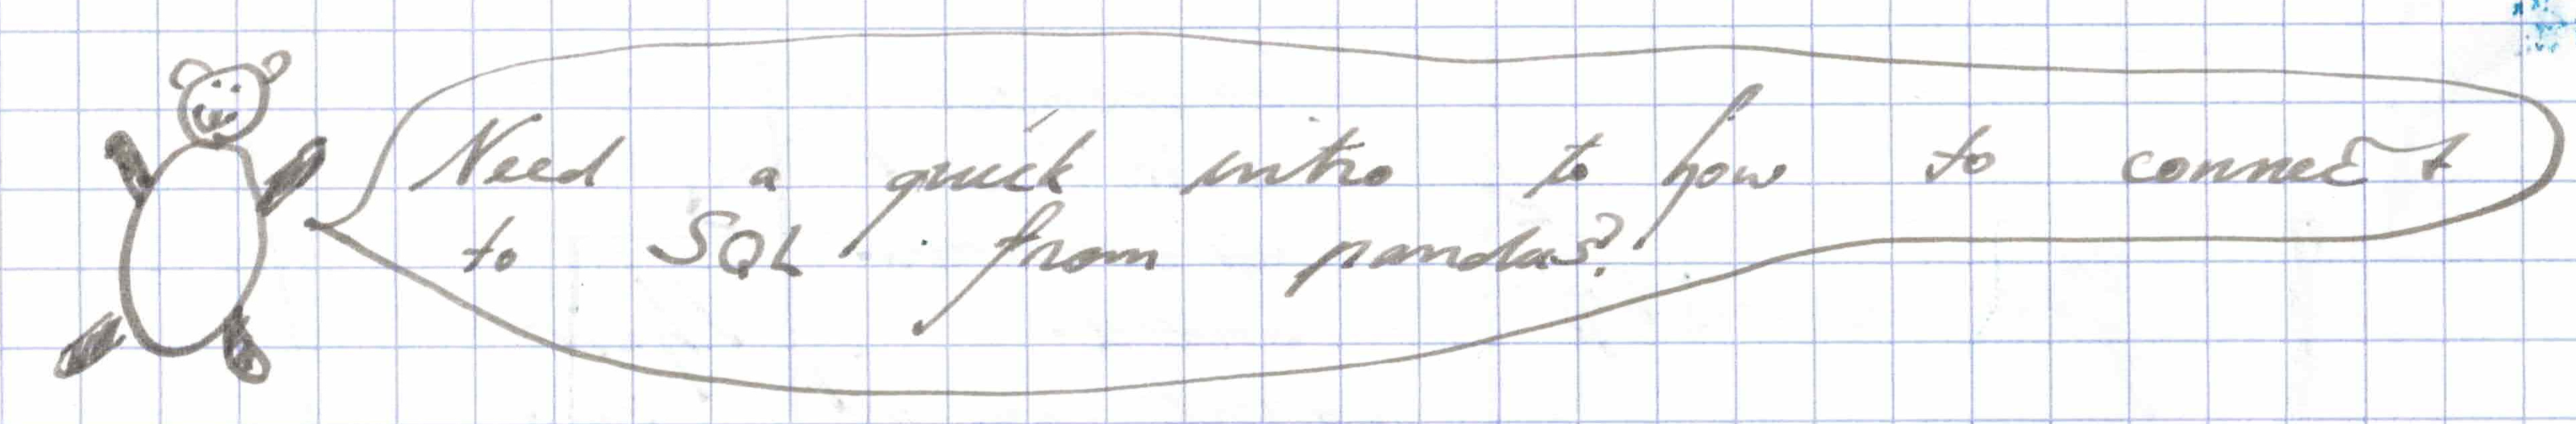 Need a quick intro to how to connect
to SQL from pandas?